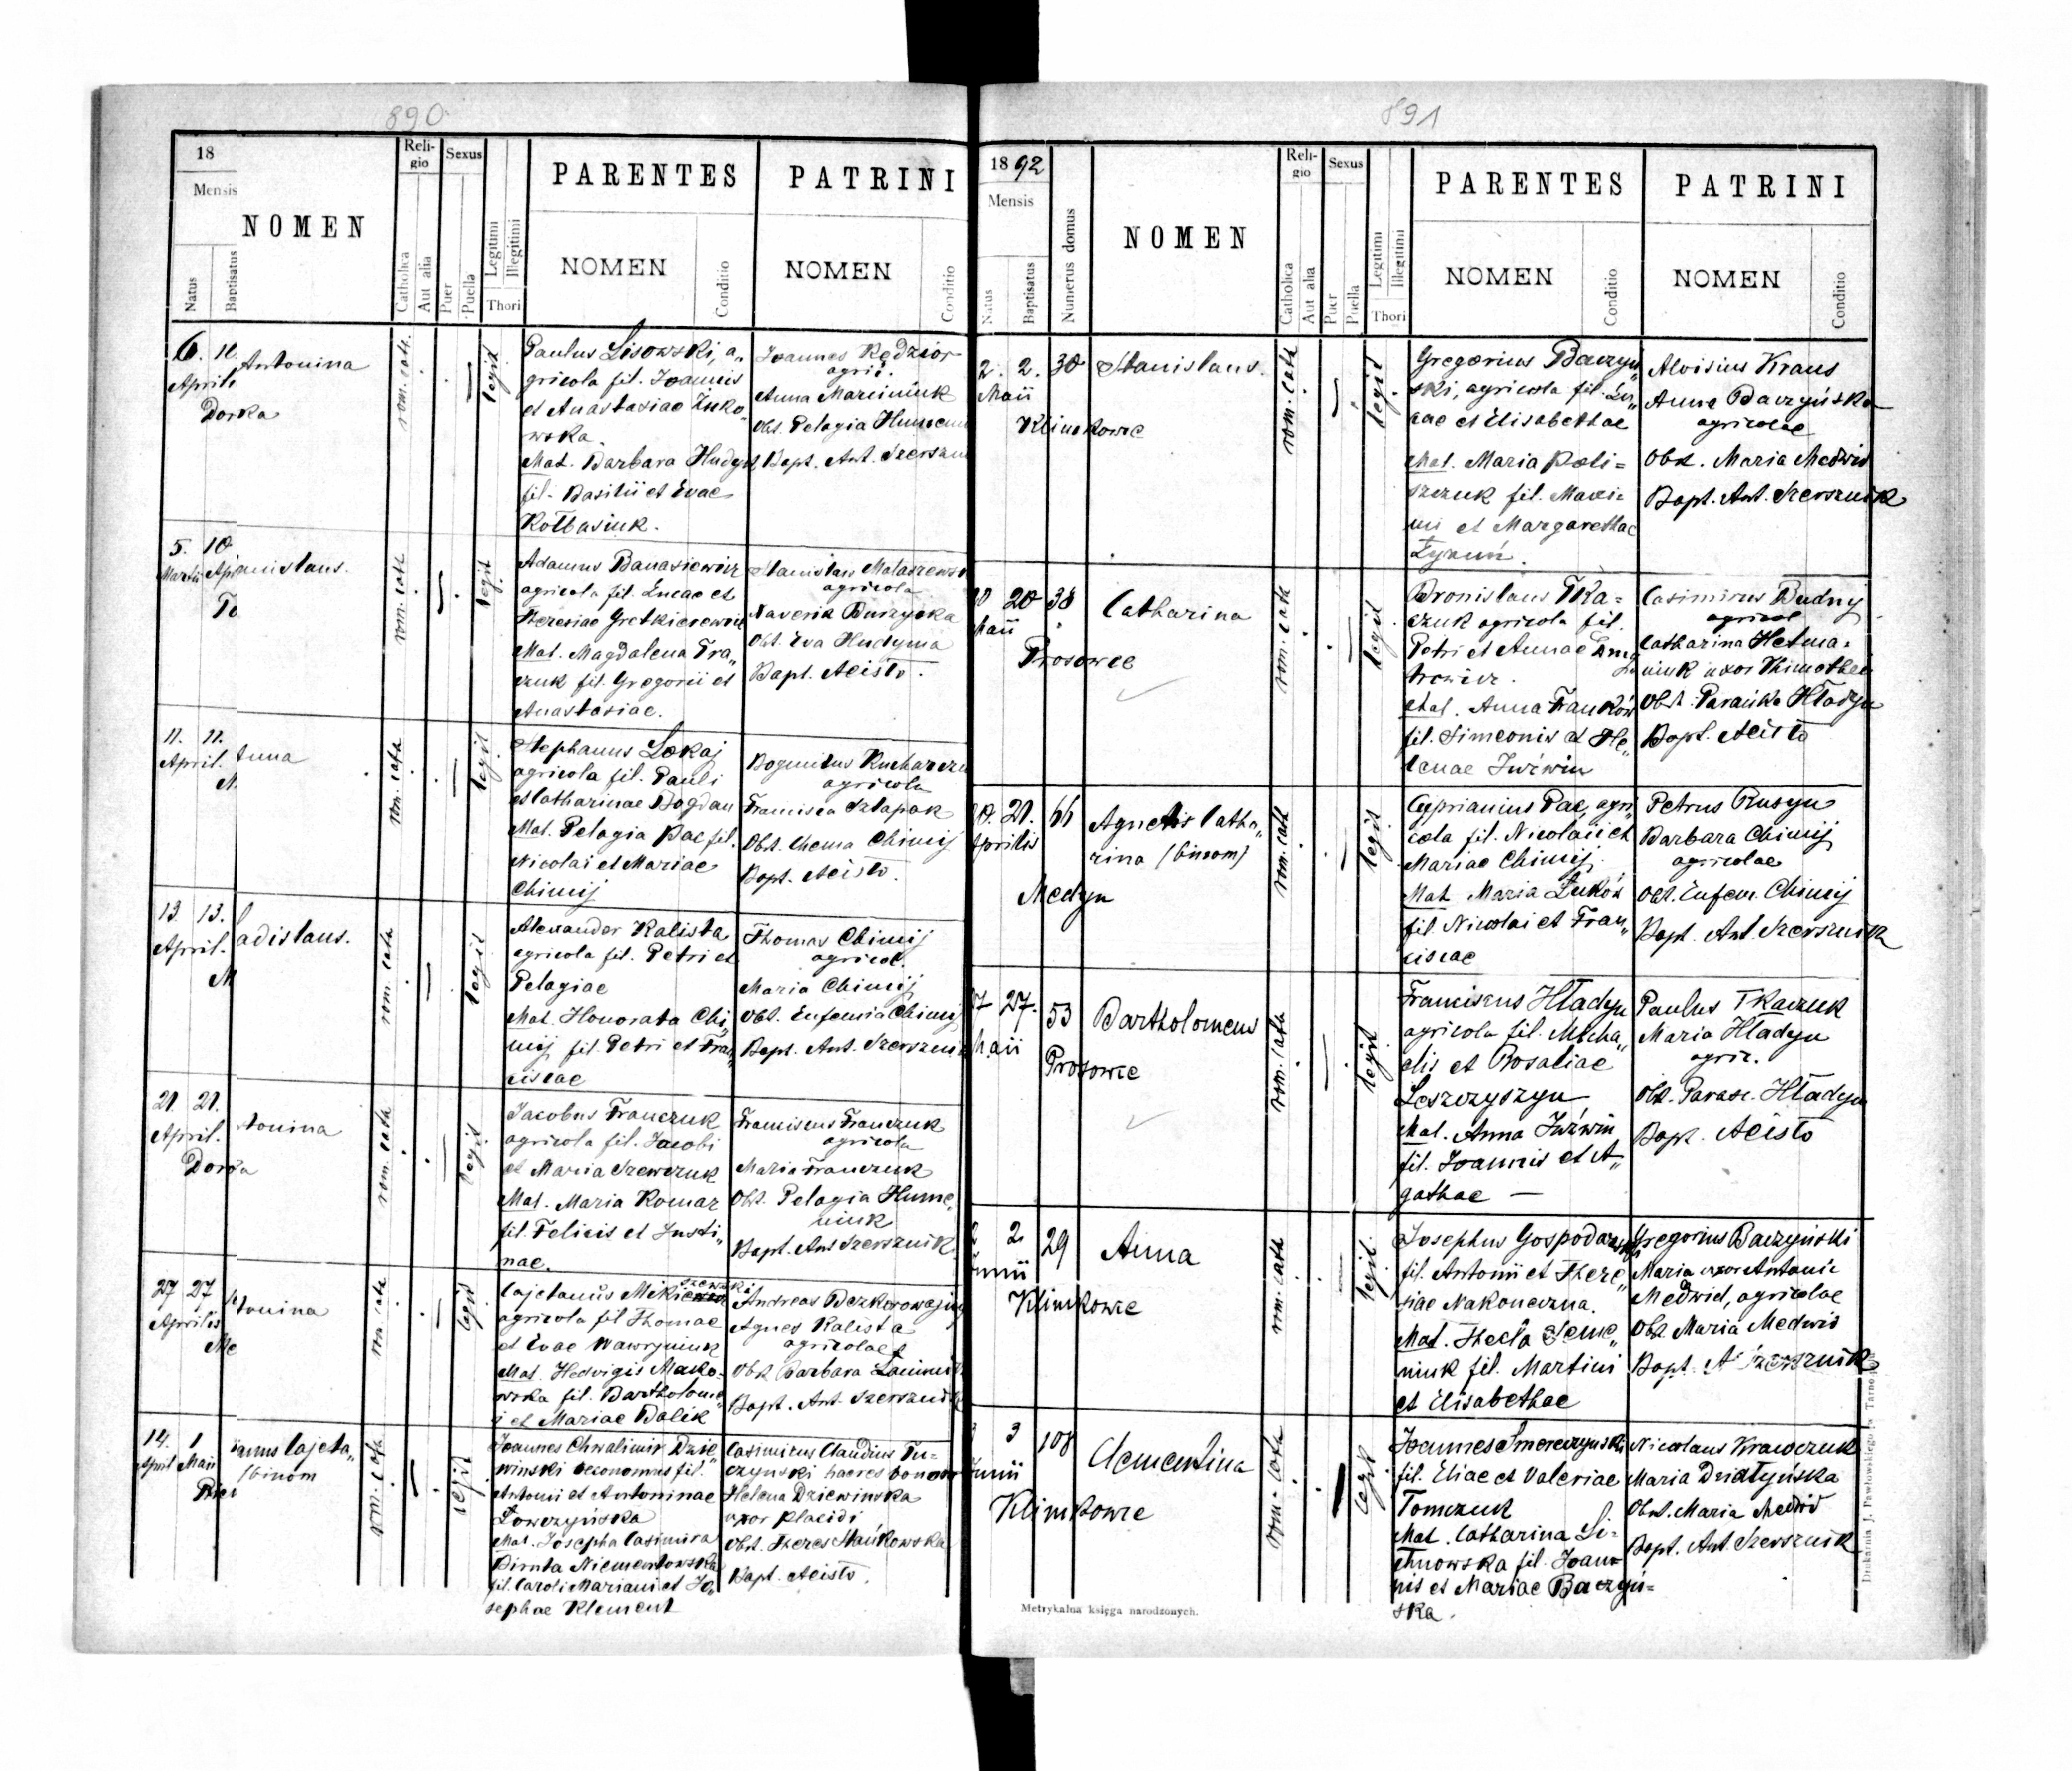 890
18
Mensis
Natus
Baptisatus
NOMEN
Religio
Catholica
Aut alia
Sexus
Puer
Puella
Legitimi
Illegitimi
Thori
PARENTES
NOMEN
Conditio
PATRINI
NOMEN
Conditio
6. 10
April
Dorka
Antonina
rom. cath.
legit
Paulus Lisowski, a„
gricola fil. Joannis
et Anastasiae Żuko„
wska.
Mat. Barbara Hudym
fil. Basilii et Evae
Kołbasiuk.
Joannes Kędzior
agric.
Anna Marciniuk
Obst. Pelagia Humeni
Bapt. Ant. Szerszni
5. 10
Martii Apr
To
anislaus.
rom. cath
legit
Adamus Banasiewicz
agricola fil. Lucae et
Theresiae Gretkierewicz
Mat. Magdalena Tra„
czuk fil. Gregorii et
Anastasiae.
Stanislaus Malaszewsk
agricola
Xaveria Burzycka
Obst. Eva Hudyma
Bapt. Ac isto.
11. 11.
April.
M
Anna
rom. cath
legit
Stephanus Lokaj
agricola fil. Pauli
et Catharinae Bogdan
Mat. Pelagia Pac fil.
Nicolai et Mariae
Chimij
Bogumilus Kucharczu
agricola
Francisca Szlapak
Obst. Chema Chimij
Bapt. Ac isto.
13. 13.
April.
M
adislaus.
rom. cath
legit
Alexander Kalista
agricola fil. Petri et
Pelagiae
Mat. Honorata Chi„
mij fil. Petri et Fran„
ciscae
Thomas Chimij
agricol.
Maria Chimij
Obst. Eufemia Chimij
Bapt. Ant. Szersznik
21. 21.
April.
Dorka
tonina
rom. cath
legit
Jacobus Franczuk
agricola fil. Jacobi
et Maria Szewczuk
Mat. Maria Komar
fil. Felicis et Justi„
nae.
Franciscus Franczuk
agricola
Maria Franczuk
Obst. Pelagia Hume„
niuk
Bapt. Ant Szersznik
27 27
Aprilis
Me
tonina
rom. cath
legit
Cajetanus Mikie
szewski
agricola fil Thomae
et Evae Wawryniuk
Mat. Hedvigis Mako„
wska fil. Bartholome„
i et Mariae Balik
Andreas Bezkorowajny
Agnes Kalista
agricolae
Obst Barbara
Bapt. Ant. Szersznik
14. 1
April Maii
annus Cajeta„
(binom
rom. cath
legit
Joannes Chwalimir Dzie„
winski oeconomus fil.
Antonii et Antoninae
Łowczyńska
Mat. Josepha Casimira
Biruta Niementowska
fil. Caroli Mariani et Jo„
sephae Klement
Casimirus Claudius Tu„
czynski haeres bonor
Helena Dziewinska
uxor Placidi
Obst. Theres Stańkowska
Bapt. Ac isto.
891
1892
Mensis
Natus
Baptisatus
Numerus domus
NOMEN
Religio
Catholica
Aut alia
Sexus
Puer
Puella
Legitimi
Illegitimi
Thori
PARENTES
NOMEN
Conditio
PATRINI
NOMEN
Conditio
2. 2. 30
Maii
Klimkowce
Stanislaus.
rom. cath
legit
Gregorius Baczyń„
ski, agricola fil. Lu„
cae et Elisabethae
Mat. Maria Poli=
szczuk fil. Maxi=
mi et Margarethae
Aloisius Kraus
Anna Baczyńska
agricolae
Obst. Maria Medwid
Bapt. Ant. Szersznik
20 38
Maii
Prosowce
Catharina
rom. cath
legit
Bronislaus Tka=
czuk agricola fil.
Petri et Annae
Mat. Anna Franków
fil. Simeonis et He„
lenae Juźwin
Casimirus Budny
agricol
Catharina Hetma=
niuk uxor Thimothei
Obst. Parańka Hładyn
Bapt. Ac isto
21. 66
Aprilis
Medyn
Agnetis Catha„
rina (binom)
rom. cath
legit
Cyprianus Pac, agri„
cola fil. Nicolai et
Mariae Chimij.
Mat. Maria Łuków
fil. Nicolai et Fran„
ciscae
Petrus Rusyn
Barbara Chimij
agricolae
Obst. Eufem. Chimij
Bapt. Ant. Szersznik
27 27. 53
Maii
Prosowce
Bartholomeus
rom. cath
legit
Franciscus Hładyn
agricola fil. Micha„
elis et Rosaliae
Leszczyszyn
Mat. Anna Juźwin
fil. Joannis et A„
gathae —
Paulus Tkaczuk
Maria Hładyn
agric.
Obst. Parasc. Hładyn
Bapt. Ac isto
2 2 29
Junii
Klimkowce
Anna
rom. cath
legit.
Josephus Gospodarski
fil. Antonii et There„
siae Nakoneczna.
Mat. Thecla Seme„
niuk fil. Martini
et Elisabethae
Gregorius Baczyński
Maria uxor Antonii
Medwid, agricolae
Obst Maria Medwid
Bapt. A Szersznik
3 3 108
Junii
Klimkowce
Clementina
rom. cath
legit
Joannes Smereczynski
fil. Eliae et Valeriae
Tomczuk
Mat. Catharina Li=
tinowska fil. Joan=
nis et Mariae Baczyń=
ska.
Nicolaus Krawczuk
Maria Działyńska
Obst. Maria Medwid
Bapt. Ant. Szersznik
Metrykalna księga narodzonych.
Drukarnia J. Pawłowskiego w Tarnopolu